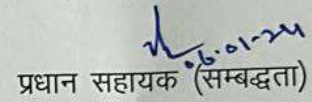 06-01-24
प्रधान सहायक (सम्बद्धता)